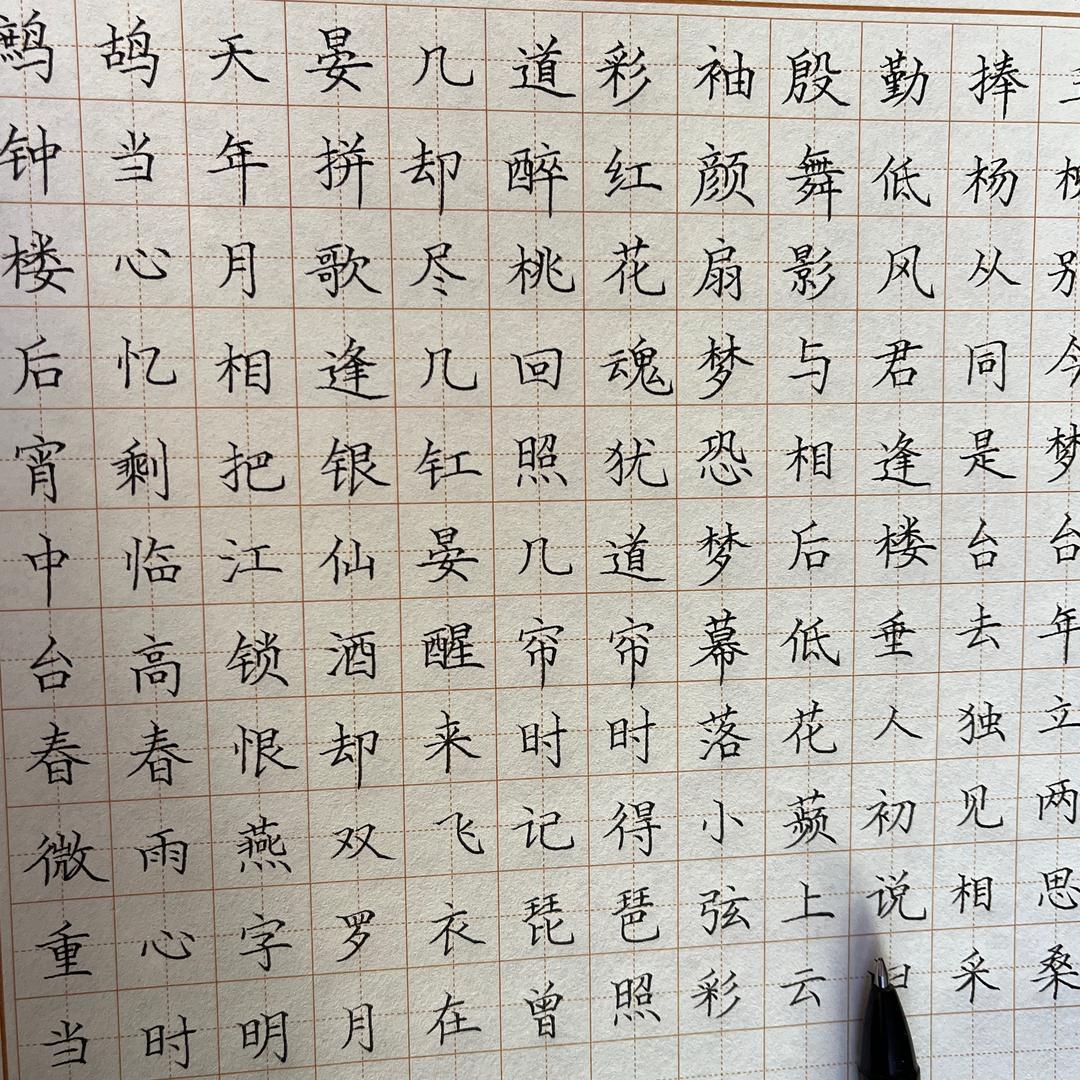 鹧鸪天晏几道彩袖殷勤捧
钟当年拼却醉红颜舞低杨柳
楼心月歌尽桃花扇影风从别
后忆相逢几回魂梦与君同今
宵剩把银釭照犹恐相逢是梦
中临江仙晏几道梦后楼台台
台高锁酒醒帘帘幕低垂去年
春春恨却来时时落花人独立
微雨燕双飞记得小𬞟初见两
重心字罗衣琵琶弦上说相思
当时明月在曾照彩云归采桑